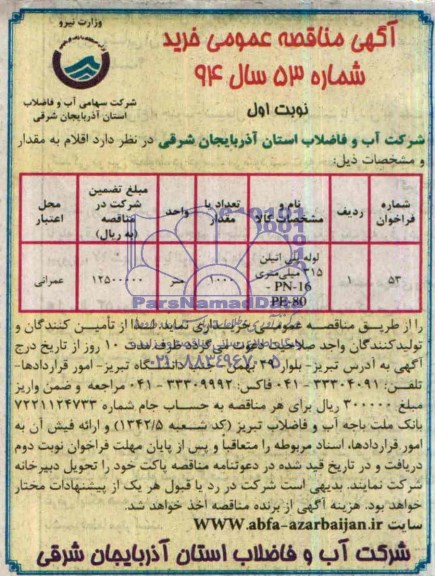 وزارت نیرو
شرکت سهامی آب و فاضلاب
استان آذربایجان شرقی
آگهی مناقصه عمومی خرید
شماره ۵۳ سال ۹۴
نوبت اول
شرکت آب و فاضلاب استان آذربایجان شرقی در نظر دارد اقلام به مقدار
و مشخصات ذیل:
شماره فراخوان ردیف نام و مشخصات کالا تعداد یا مقدار واحد مبلغ تضمین شرکت در مناقصه (به ریال) محل اعتبار
۵۳ ۱ لوله پلی اتیلن ۳۱۵ میلی‌متری PN-16 - PE-80 ۱۰۰۰ متر ۱۲۵۰۰۰۰۰ عمرانی
ParsNamadData
۰۲۱-۸۸۳۴۹۶۷۰-۵
را از طریق مناقصه عمومی خریداری نماید لذا از تأمین کنندگان و
تولیدکنندگان واجد صلاحیت دعوت می‌گردد ظرف مدت ۱۰ روز از تاریخ درج
آگهی به آدرس تبریز- بلوار ۲۹ بهمن- جنب دانشگاه تبریز- امور قراردادها-
تلفن: ۳۳۳۰۴۰۹۱-۰۴۱ فاکس: ۳۳۳۰۹۹۹۲-۰۴۱ مراجعه و ضمن واریز
مبلغ ۳۰۰۰۰۰ ریال برای هر مناقصه به حساب جام شماره ۷۲۲۱۱۲۴۷۳۳
بانک ملت باجه آب و فاضلاب تبریز (کد شعبه ۱۳۴۲/۵) و ارائه فیش آن به
امور قراردادها، اسناد مربوطه را متعاقباً و پس از پایان مهلت فراخوان نوبت دوم
دریافت و در تاریخ قید شده در دعوتنامه مناقصه پاکت خود را تحویل دبیرخانه
شرکت نمایند. بدیهی است شرکت در رد یا قبول هر یک از پیشنهادات مختار
خواهد بود. هزینه آگهی از برنده مناقصه اخذ خواهد شد.
سایت WWW.abfa-azarbaijan.ir
شرکت آب و فاضلاب استان آذربایجان شرقی